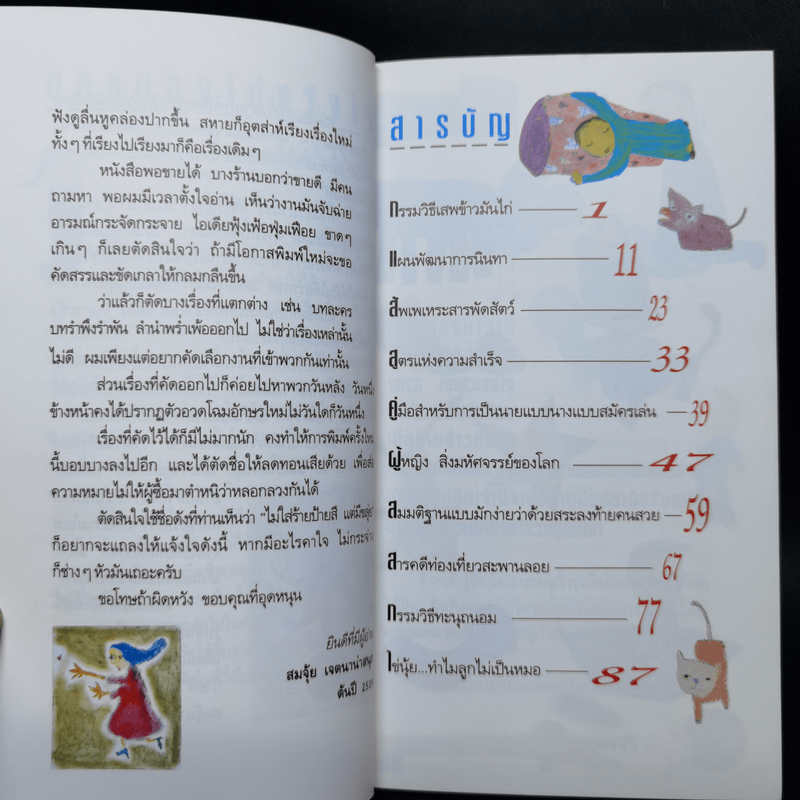 ฟังดูลื่นหูคล่องปากขึ้น สหายก็อุตส่าห์เรียงเรื่องใหม่
ทั้งๆ ที่เรียงไปเรียงมาก็คือเรื่องเดิมๆ
หนังสือพอขายได้ บางร้านบอกว่าขายดี มีคน
ถามหา พอผมมีเวลาตั้งใจอ่าน เห็นว่างานมันจับฉ่าย
อารมณ์กระจัดกระจาย ไอเดียฟุ้งเฟ้อฟุ่มเฟือย ขาดๆ
เกินๆ ก็เลยตัดสินใจว่า ถ้ามีโอกาสพิมพ์ใหม่จะขอ
คัดสรรและขัดเกลาให้กลมกลืนขึ้น
ว่าแล้วก็ตัดบางเรื่องที่แตกต่าง เช่น บทละคร
บทรำพึงรำพัน ลำนำพร่ำเพ้อออกไป ไม่ใช่ว่าเรื่องเหล่านั้น
ไม่ดี ผมเพียงแต่อยากคัดเลือกงานที่เข้าพวกกันเท่านั้น
ส่วนเรื่องที่คัดออกไปก็ค่อยไปหาพวกวันหลัง วันหนึ่ง
ข้างหน้าคงได้ปรากฏตัวอวดโฉมอักษรใหม่วันใดก็วันหนึ่ง
เรื่องที่คัดไว้ได้ก็มีไม่มากนัก คงทำให้การพิมพ์ครั้งใหม่
นี้บอบบางลงไปอีก และได้ตัดชื่อให้ลดทอนเสียด้วย เพื่อ
ความหมายไม่ให้ผู้ซื้อมาตำหนิว่าหลอกลวงกันได้
ตัดสินใจใช้ชื่อดังที่ท่านเห็นว่า "ไม่ใส่ร้ายป้ายสี แต่มีขลุ่ย"
ก็อยากจะแถลงให้แจ้งใจดังนี้ หากมีอะไรคาใจ ไม่กระจ่าง
ก็ช่างๆ หัวมันเถอะครับ
ขอโทษถ้าผิดหวัง ขอบคุณที่อุดหนุน
ยินดีที่มีผู้อ่าน
สมจุ้ย เจตนาน่าสนุก
ต้นปี
สารบัญ
กรรมวิธีเสพข้าวมันไก่ 1
แผนพัฒนาการนินทา 11
สัพเพเหระสารพัดสัตว์ 23
สูตรแห่งความสำเร็จ 33
คู่มือสำหรับการเป็นนายแบบนางแบบสมัครเล่น 39
ผู้หญิง สิ่งมหัศจรรย์ของโลก 47
สมมติฐานแบบมักง่ายว่าด้วยสระลงท้ายคนสวย 59
สารคดีท่องเที่ยวสะพานลอย 67
กรรมวิธีทะนุถนอม 77
ไข่นุ้ย...ทำไมลูกไม่เป็นหมอ 87